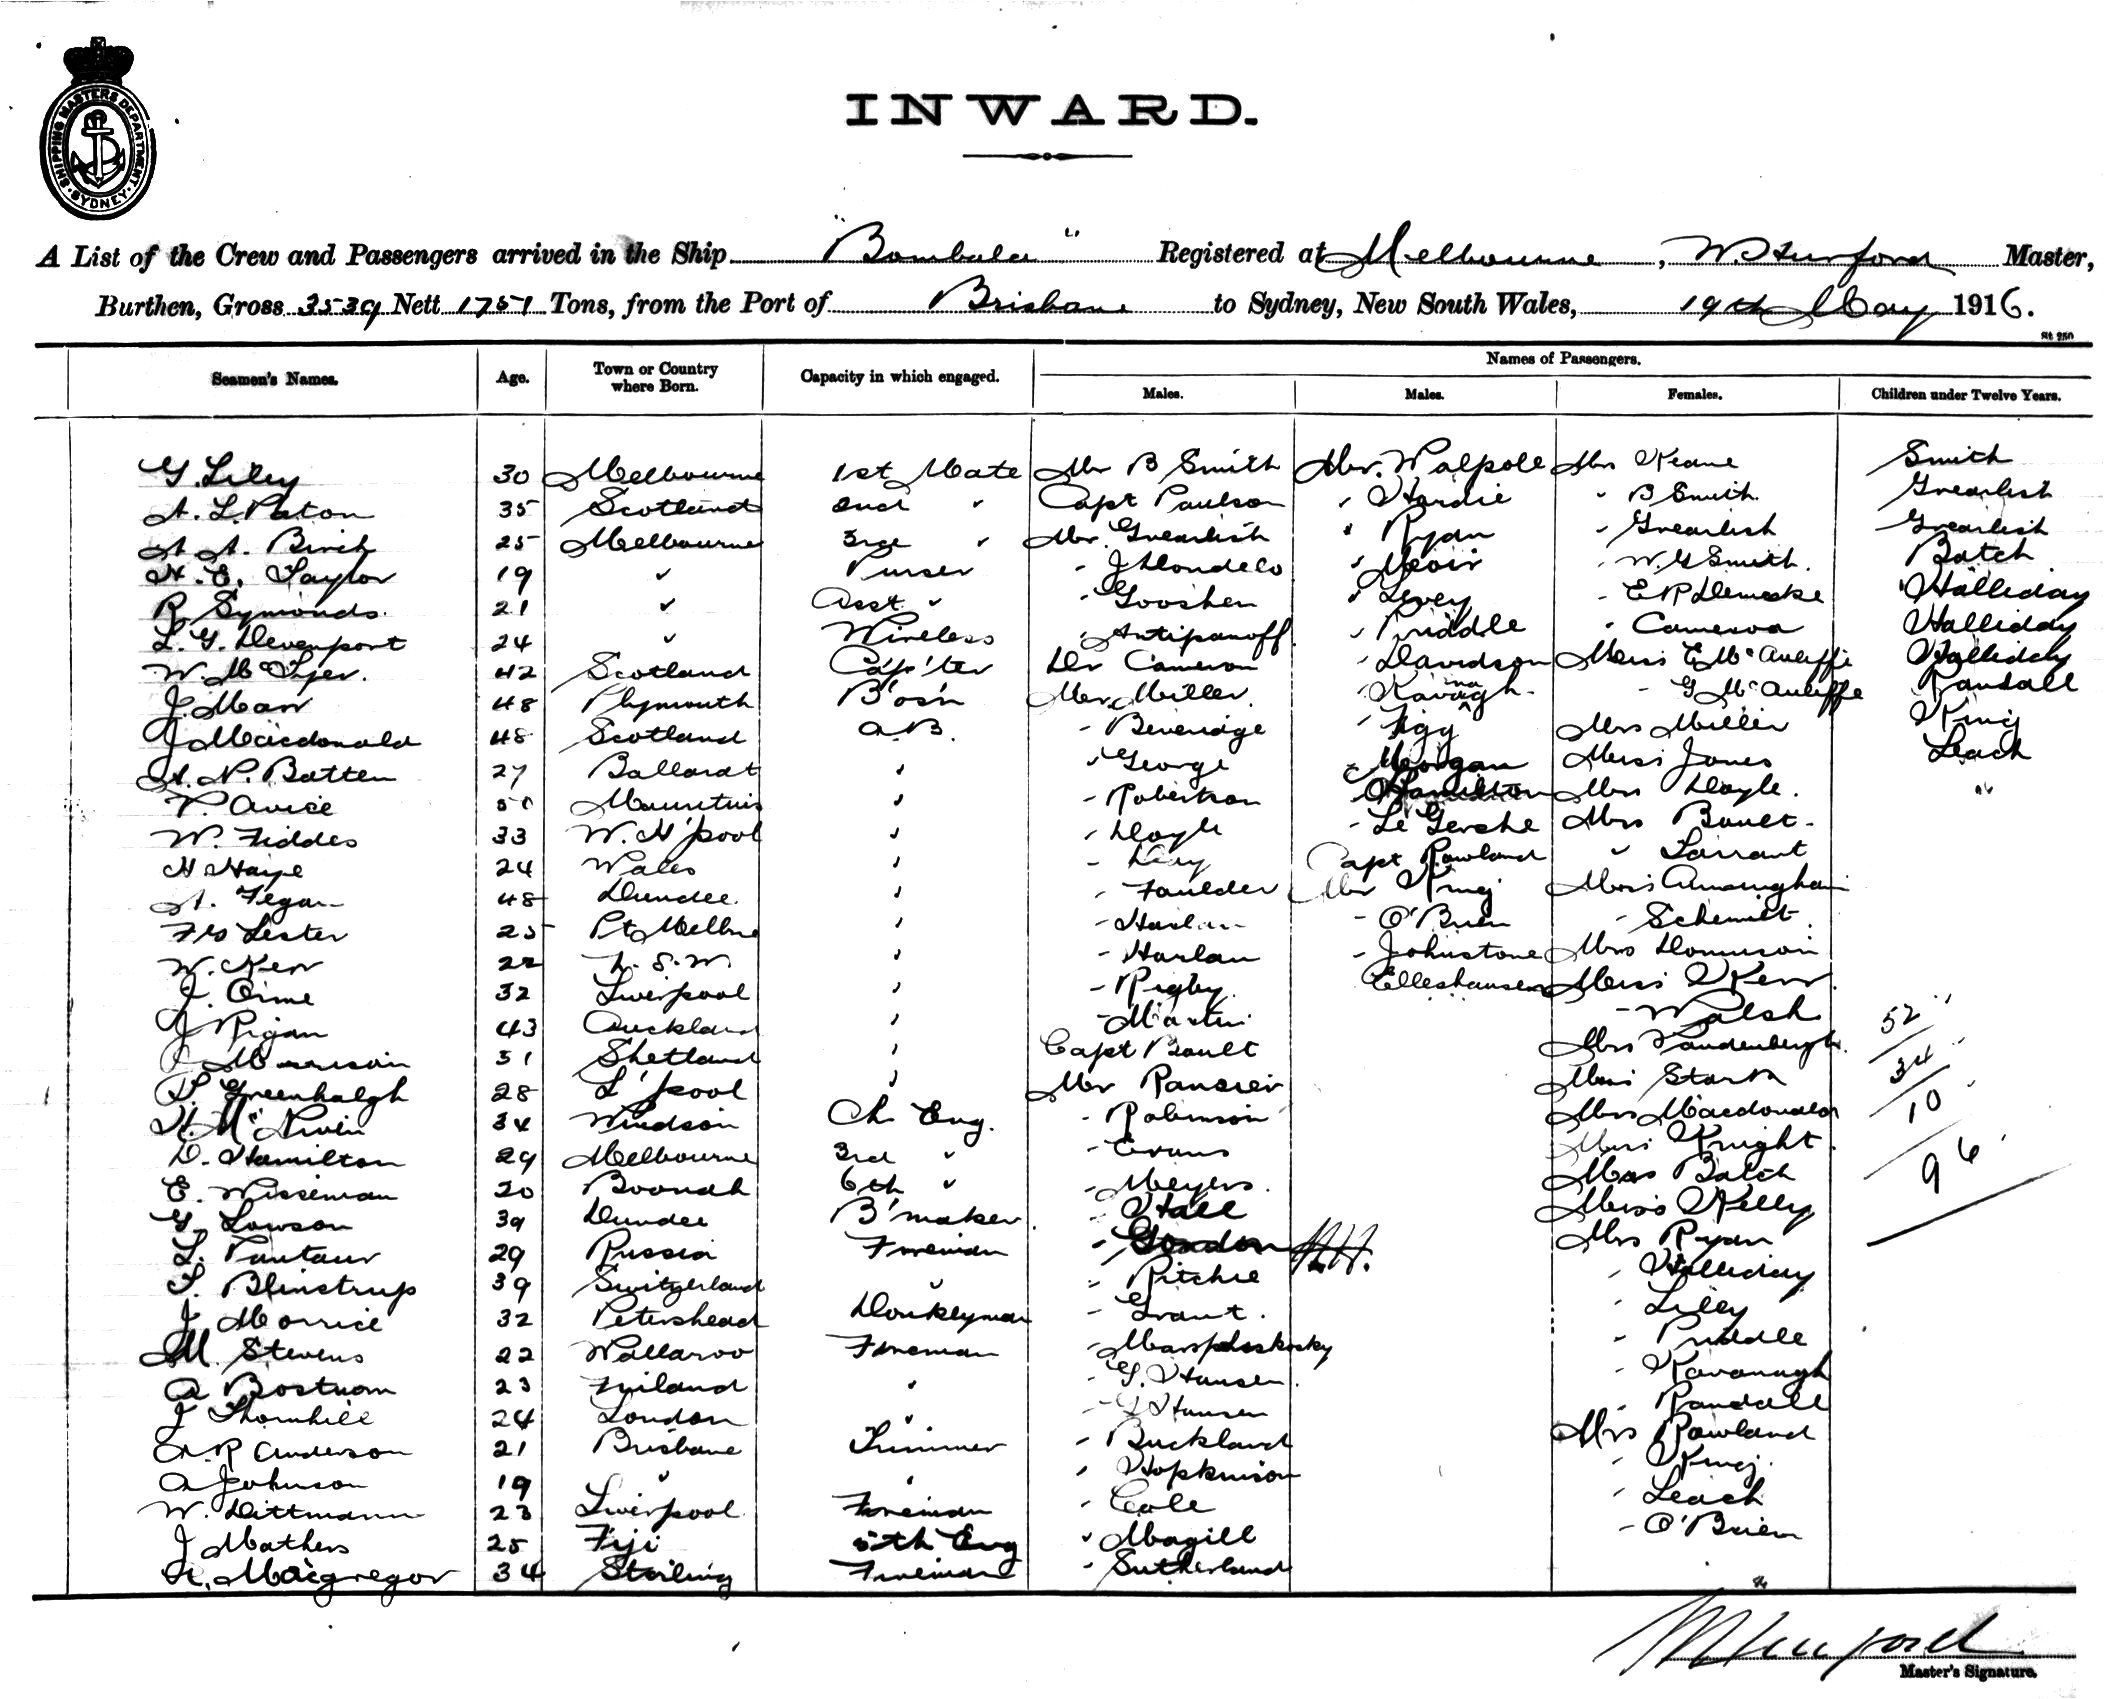 SHIPPING MASTERS DEPARTMENT. SYDNEY
INWARD.
A List of the Crew and Passengers arrived in the Ship "Bombala" Registered at Melbourne, W. Hurford Master,
Burthen, Gross 3539 Nett 1751 Tons, from the Port of Brisbane to Sydney, New South Wales, 19th May 1916.
St 250
Names of Passengers.
Seamen's Names. Age. Town or Country where Born. Capacity in which engaged. Males. Males. Females. Children under Twelve Years.
G. Liley 30 Melbourne 1st Mate Mr B Smith Mr. Walpole Mrs Keane Smith
A. L. Paton 35 Scotland 2nd " Capt Paulson " Hardie " B Smith.
A A. Birch 25 Melbourne 3rd " Mr. " Ryan "
H. E. Taylor 19 " Purser - " Moir " W. G Smith. Batch
R Symonds. 21 " Asst. " - Gooshen " Levey - Halliday
L. G. Devenport 24 " Wireless " Antipanoff " Priddle " Cameron Halliday
W. Mc 42 Scotland Cap'ter Dr Cameron " Davidson Miss E McAuliffe Halliday
J. Marr 48 Plymouth B'osn Mr Miller. " Kavanagh - G McAuliffe Randall
J Macdonald 48 Scotland A.B. - Beveridge " Figg Mrs Miller King
A. N. Batten 27 Ballarat " " George " Morgan Miss Jones Leach
P. Avice 50 Mauritius " - Robertson " Hamilton Mrs Doyle.
W. Fiddes 33 W. H'pool " " Doyle - Le Gerche Mrs Boult -
H Haye 24 Wales " - Capt Rowland " Tarrant
A. Fegan 48 Dundee. " - Faulder Mr King Miss
F G Lester 25 Pt Melbne " - Harlan - O'Brien -
W. Kerr 22 N. S. W. " - Harlan - Johnstone Mrs
J. Orme 32 Liverpool " - Rigby. Elleshausen Miss Kerr.
J Rigan 43 Auckland " - Martin - Walsh 52
Morrison 31 Shetland " Capt Boult Mrs Vandenbergh. 34
S. Greenhalgh 28 L'pool " Mr Miss Stark 10
H. McNiven 34 Windsor Ch Eng. - Robinson Mrs Macdonald 96
D. Hamilton 29 Melbourne 3rd " - Evans Miss Knight.
E. Wisseman 20 Boonah 6th " - Meyers. Mrs Batch
G. Lawson 39 Dundee B'maker - Hall Miss Kelly
L. 29 Russia Fireman " Gordon W.H. Mrs Ryan
S. Blinstrup 39 Switzerland " - Ritchie " Halliday
J Morrice 32 Petershead Donkeyman - Grant. " Liley
M. Stevens 22 Wallaroo Fireman - " Priddle
A Bostrom 23 Finland " - G. Hansen. - Kavanagh
J Thornhill 24 London " - Hansen - Randall
A. R Anderson 21 Brisbane Trimmer - Buckland Mrs Rowland
A Johnson 19 " " " Hopkinson " King.
W. Dittmann 23 Liverpool Fireman - Cole " Leach
J Mathers 25 Fiji 5th Eng " Magill - O'Brien
A. Macgregor 34 Stirling Fireman - Sutherland
W Hurford
Master's Signature.